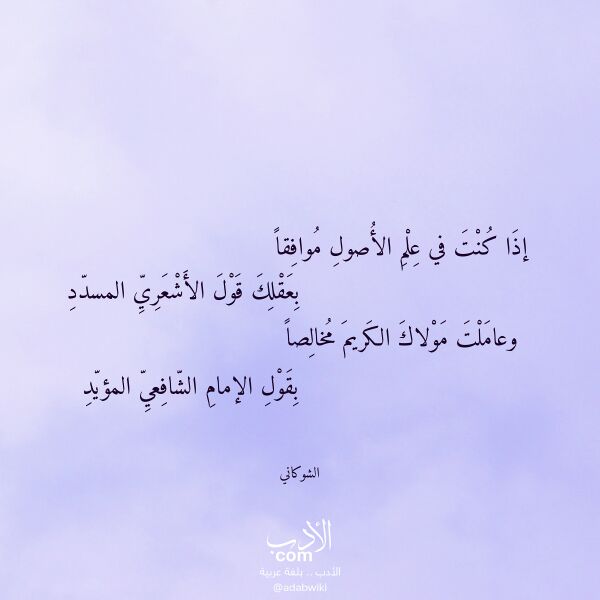 إذَا كُنْتَ في عِلْمِ الأُصولِ مُوافِقاً
بِعَقْلِكَ قَوْلَ الأَشْعَرِيِّ المسدّدِ
وعامَلْتَ مَوْلاكَ الكَريمَ مُخالِصاً
بِقَوْلِ الإمامِ الشّافِعيِّ المؤيّدِ
الشوكاني
الأدب
com
الأدب .. بلغة عربية
@adabwiki